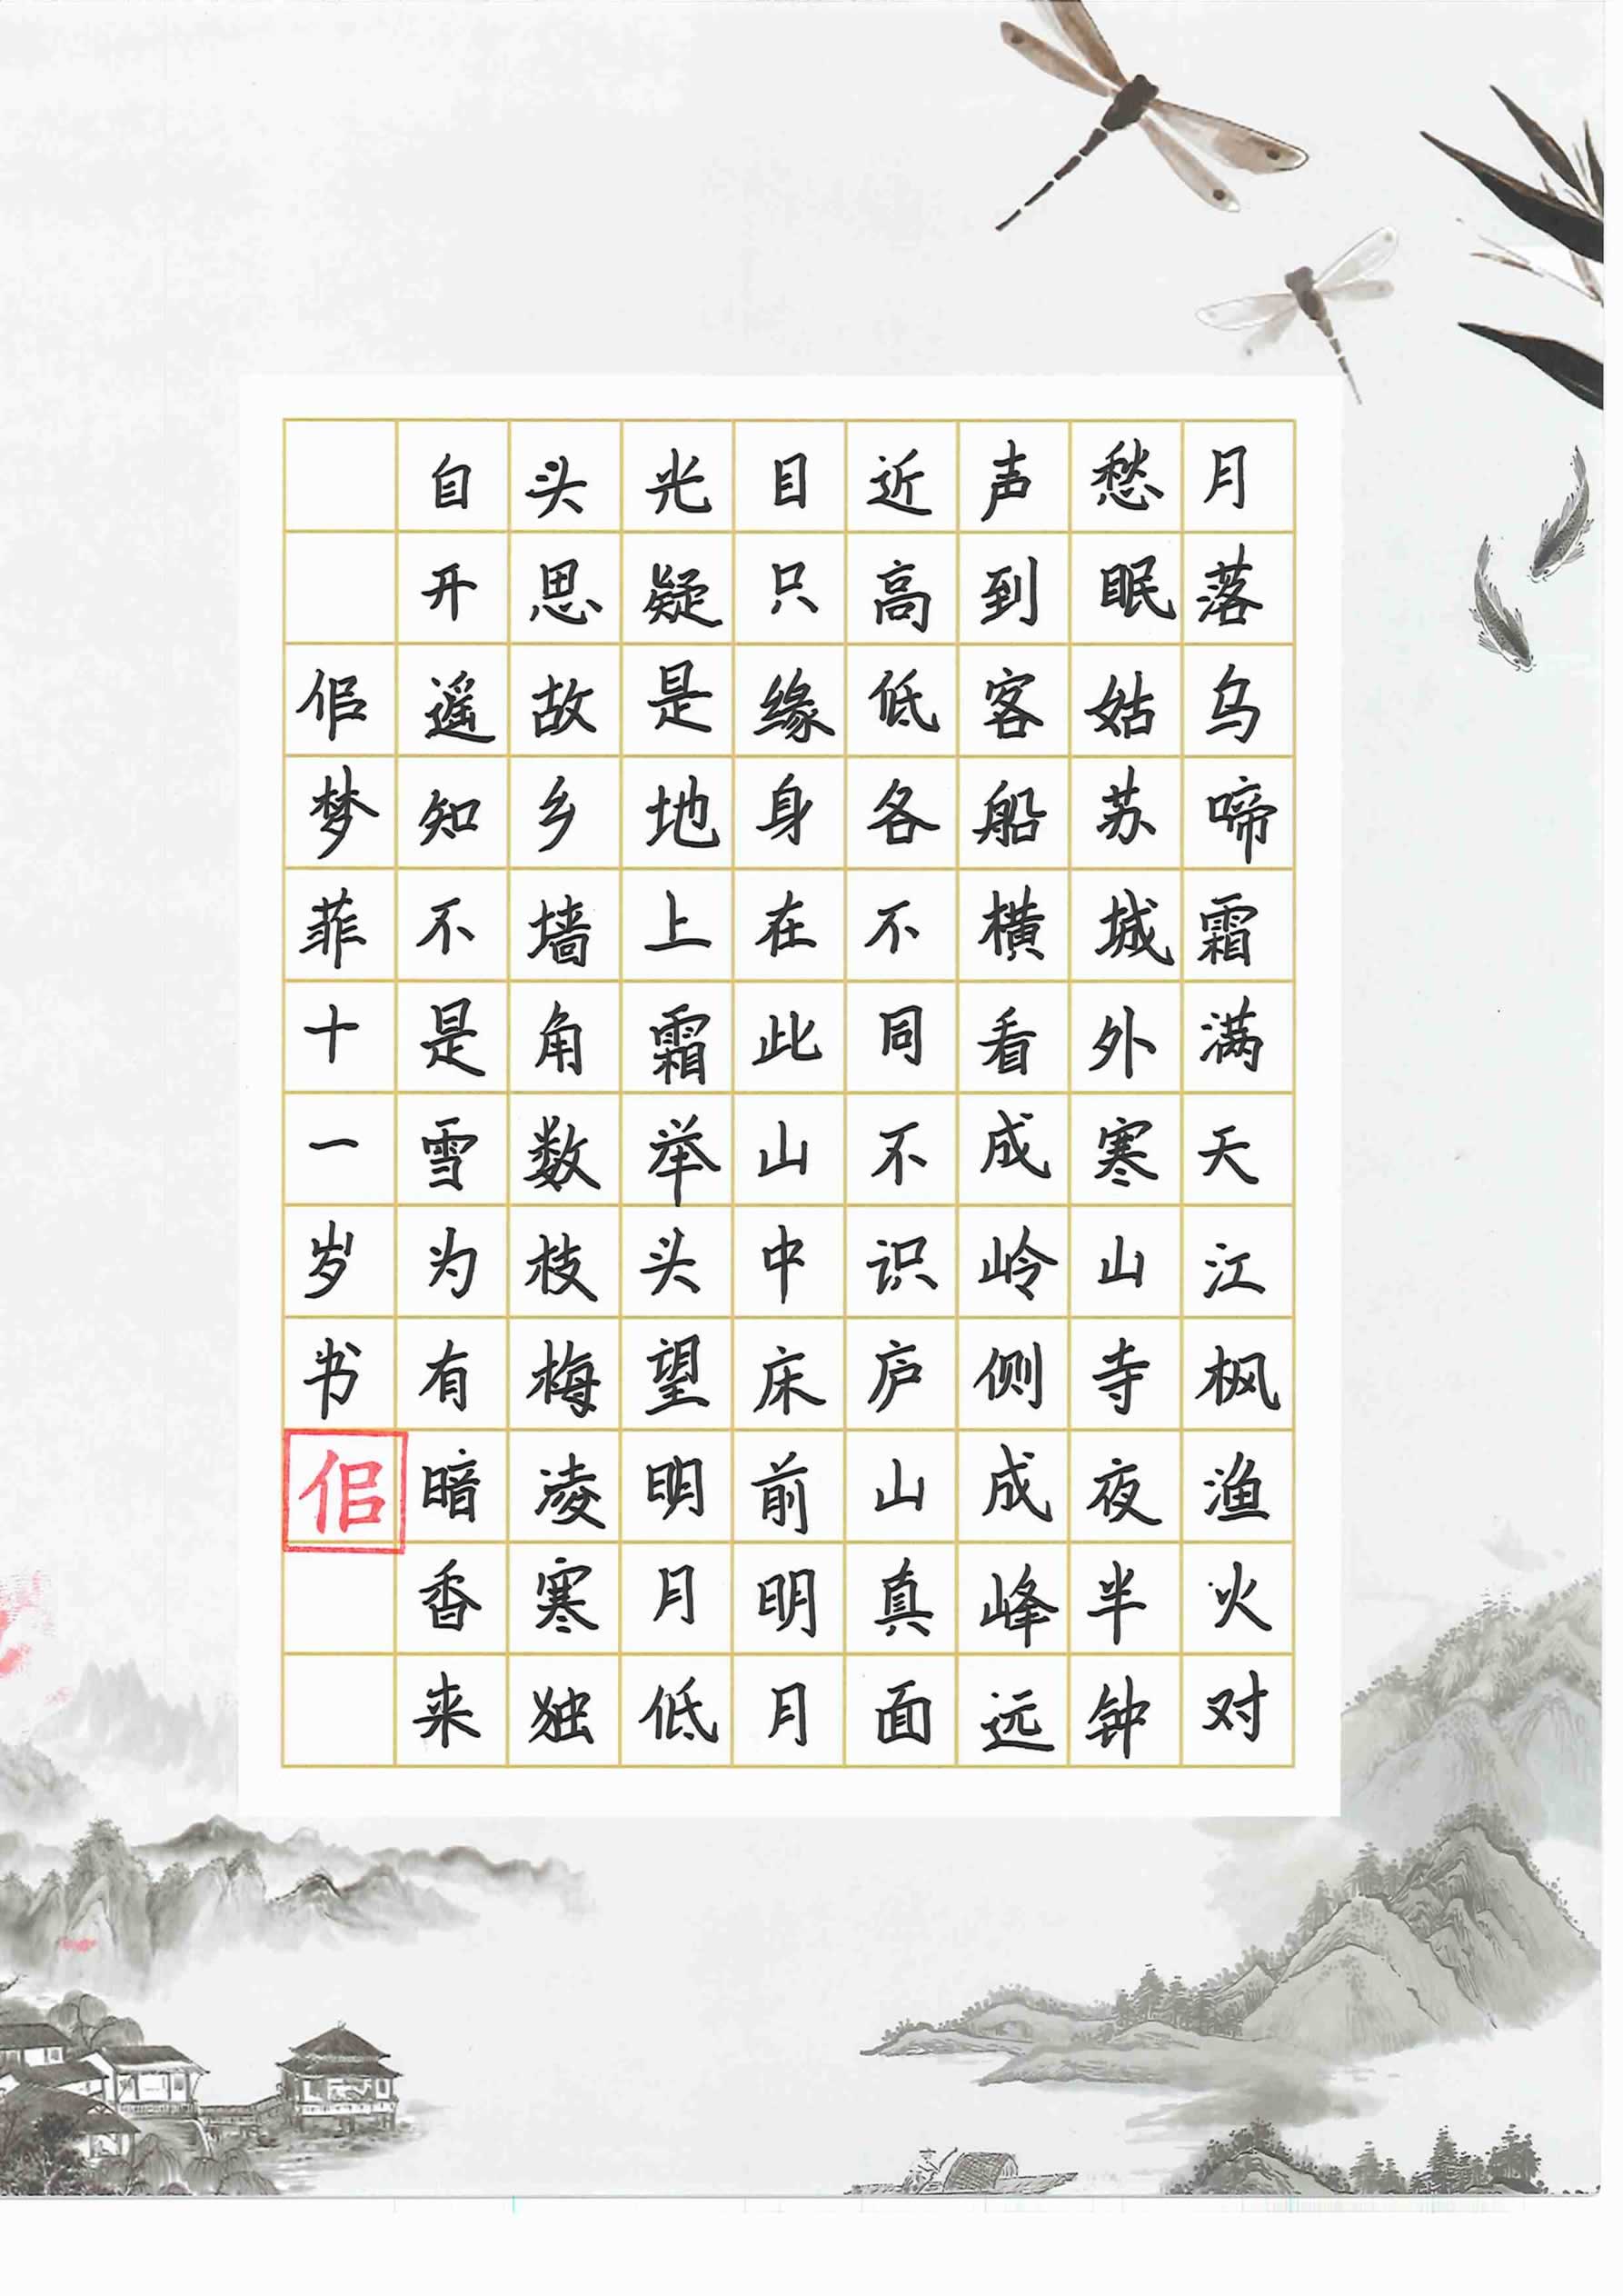 月落乌啼霜满天江枫渔火对
愁眠姑苏城外寒山寺夜半钟
声到客船横看成岭侧成峰远
近高低各不同不识庐山真面
目只缘身在此山中床前明月
光疑是地上霜举头望明月低
头思故乡墙角数枝梅凌寒独
自开遥知不是雪为有暗香来
佀梦菲十一岁书
佀